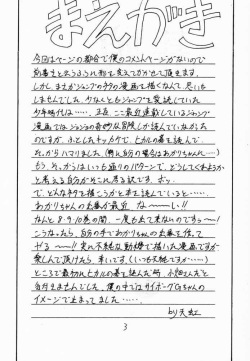 まえがき
今回はページの都合で僕のコメントページがないので
前書きと言うのも形を変えてかかせて頂きます。
しかし、まさかジャンプのマンガで描くなんて思いも
しませんでした。少なくともジャンプを愛読していた
少年時代は……。正直ここ最近連載しているジャンプ
漫画ではジョジョの奇妙な冒険しか読んでいなかった
のですが、ふとしたキッカケで、ヒカルの碁を読んで
それからハマりました(特に自分の場合はあかりちゃんに…)
もう、それからはいつも通りのパターンで、どうしてくれようか
と考える自分がそこに居る訳です。ボッ
で、どんなネタで描こうかと本を読んでいると……、
あかりちゃんの出番が最近 な〜い!!
なんと8・9・10巻の間、一度も出て来ないのですっ〜!
こうなったら、自分の手であかりちゃんの出番を作って
やる〜!! 実に不純な動機で描いた漫画ですが
楽しんで頂けたら、幸いです。(いつも不純ですが…)
ところで最初、ヒカルの碁を読んだ時、小畑さんだと
自分はそんでした。僕の中ではサイボーグGちゃんの
イメージで止まってました……
by 天虹
3